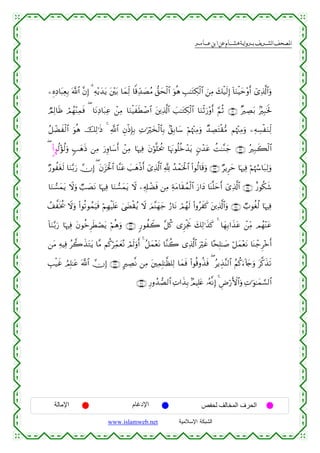 المصحف الشريف برواية هشام عن ابن عامر
وَٱلَّذِىٓ أَوْحَيْنَآ إِلَيْكَ مِنَ ٱلْكِتَٰبِ هُوَ ٱلْحَقُّ مُصَدِّقًا لِّمَا بَيْنَ يَدَيْهِ ۗ إِنَّ ٱللَّهَ بِعِبَادِهِۦ
لَخَبِيرٌۢ بَصِيرٌ ثُمَّ أَوْرَثْنَا ٱلْكِتَٰبَ ٱلَّذِينَ ٱصْطَفَيْنَا مِنْ عِبَادِنَا ۖ فَمِنْهُمْ ظَالِمٌ
لِّنَفْسِهِۦ وَمِنْهُم مُّقْتَصِدٌ وَمِنْهُمْ سَابِقٌۢ بِٱلْخَيْرَٰتِ بِإِذْنِ ٱللَّهِ ۚ ذَٰلِكَ هُوَ ٱلْفَضْلُ
ٱلْكَبِيرُ جَنَّٰتُ عَدْنٍ يَدْخُلُونَهَا يُحَلَّوْنَ فِيهَا مِنْ أَسَاوِرَ مِن ذَهَبٍ وَلُؤْلُؤًا ۖ
وَلِبَاسُهُمْ فِيهَا حَرِيرٌ وَقَالُوا۟ ٱلْحَمْدُ لِلَّهِ ٱلَّذِىٓ أَذْهَبَ عَنَّا ٱلْحَزَنَ ۖ إِنَّ رَبَّنَا لَغَفُورٌ
شَكُورٌ ٱلَّذِىٓ أَحَلَّنَا دَارَ ٱلْمُقَامَةِ مِن فَضْلِهِۦ لَا يَمَسُّنَا فِيهَا نَصَبٌ وَلَا يَمَسُّنَا
فِيهَا لُغُوبٌ وَٱلَّذِينَ كَفَرُوا۟ لَهُمْ نَارُ جَهَنَّمَ لَا يُقْضَىٰ عَلَيْهِمْ فَيَمُوتُوا۟ وَلَا يُخَفَّفُ
عَنْهُم مِّنْ عَذَابِهَا ۚ كَذَٰلِكَ نَجْزِى كُلَّ كَفُورٍ وَهُمْ يَصْطَرِخُونَ فِيهَا رَبَّنَآ
أَخْرِجْنَا نَعْمَلْ صَٰلِحًا غَيْرَ ٱلَّذِى كُنَّا نَعْمَلُ ۚ أَوَلَمْ نُعَمِّرْكُم مَّا يَتَذَكَّرُ فِيهِ مَن
تَذَكَّرَ وَجَآءَكُمُ ٱلنَّذِيرُ ۖ فَذُوقُوا۟ فَمَا لِلظَّٰلِمِينَ مِن نَّصِيرٍ إِنَّ ٱللَّهَ عَٰلِمُ غَيْبِ
ٱلسَّمَٰوَٰتِ وَٱلْأَرْضِ ۚ إِنَّهُۥ عَلِيمٌۢ بِذَاتِ ٱلصُّدُورِ
الحرف المخالف لحفص الإدغام الإمالة
www.islamweb.net الشبكة الإسلامية